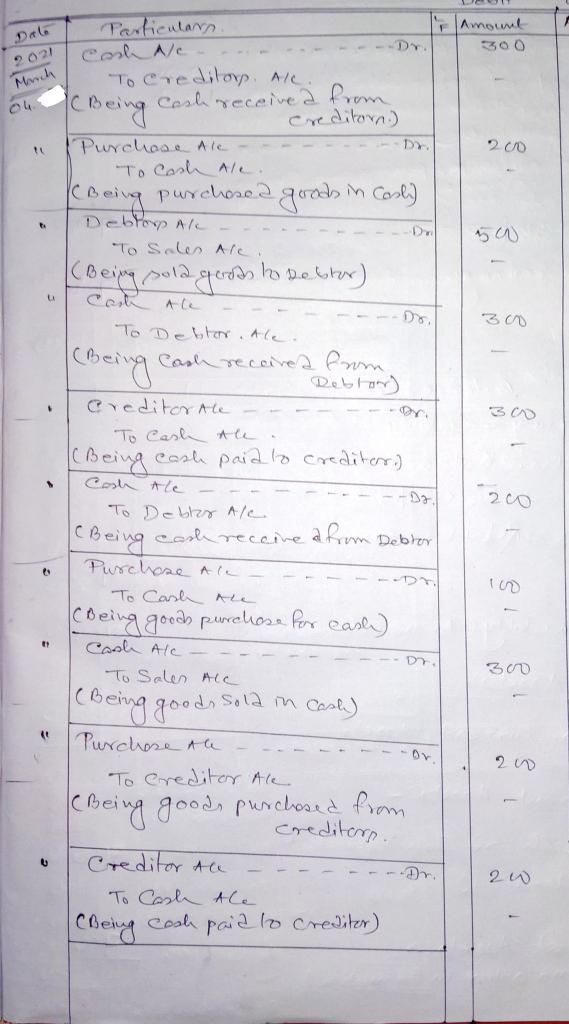 Debit
Date Particulars. L/F Amount
2021 Cash A/c - - - - - - Dr. 300
March To Creditors. A/c. -
04. (Being Cash received from
creditors.)
" Purchase A/c - - - - - - Dr. 200
To Cash A/c. -
(Being purchased goods in Cash)
" Debtors A/c - - - - - - Dr 500
To Sales A/c. -
(Being sold goods to Debtor)
" Cash A/c - - - - - - Dr. 300
To Debtor. A/c. -
(Being Cash received from
Debtor)
" Creditor A/c - - - - - - Dr. 300
To Cash A/c. -
(Being cash paid to creditor.)
" Cash A/c - - - - - - Dr. 200
To Debtor A/c -
(Being cash received from Debtor
" Purchase A/c - - - - - - Dr. 100
To Cash A/c -
(Being goods purchase for cash)
" Cash A/c - - - - - - Dr. 300
To Sales A/c -
(Being goods Sold in Cash)
" Purchase A/c - - - - - - Dr. 200
To Creditor A/c -
(Being goods purchased from
Creditors.
" Creditor A/c - - - - - - Dr. 200
To Cash A/c -
(Being Cash paid to Creditor)